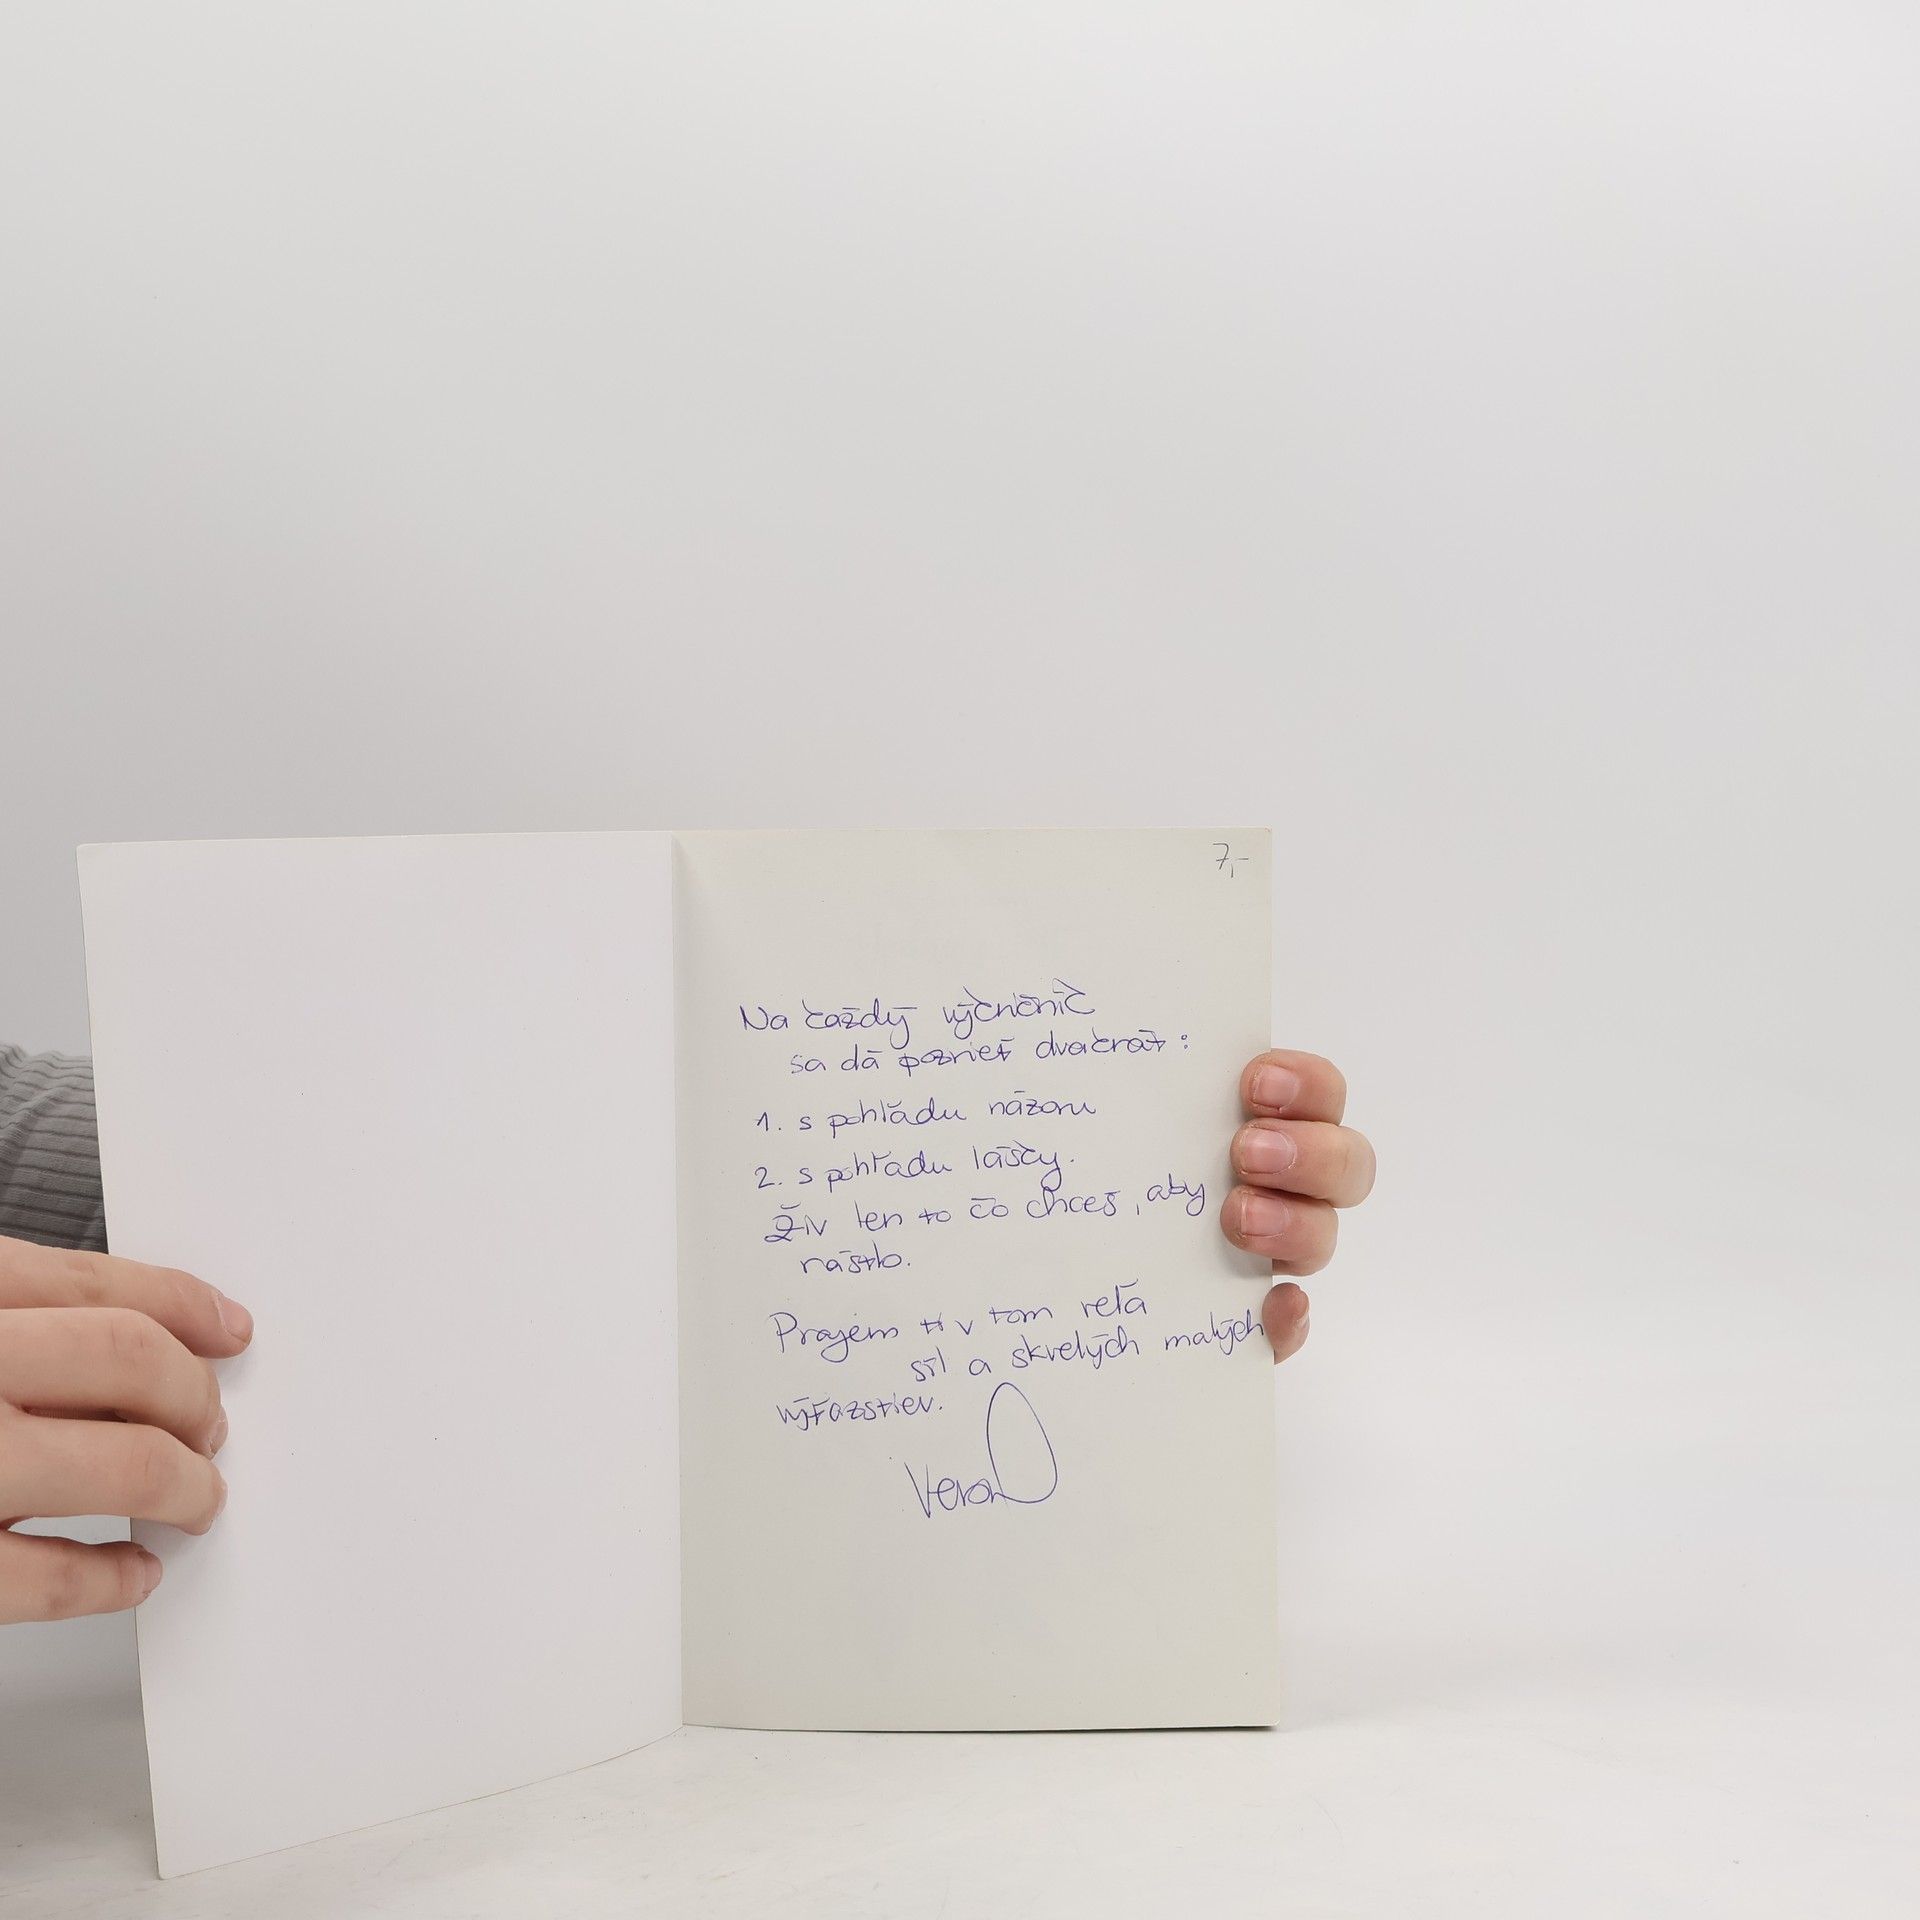 7,-
Na každý výkričník
sa dá pozrieť dvakrát:
1. s pohľadu názoru
2. s pohľadu lásky.
Živ len to čo chceš, aby
rástlo.
Prajem ti v tom veľa
síl a skvelých malých
výťazstiev.